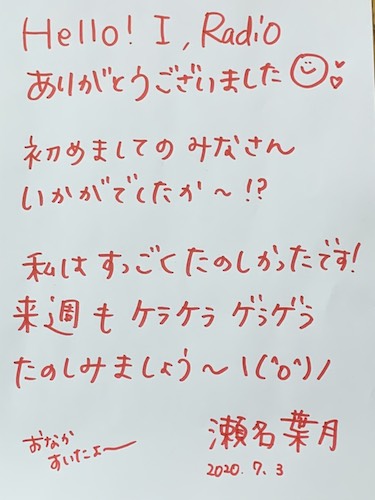 Hello! I, Radio
ありがとうございました
初めましての みなさん
いかがでしたか～!?
私は すっごく たのしかったです!
来週 も ケラケラ ゲラゲラ
たのしみましょう～ \(^o^)/
おなか
すいたよ～
瀬名葉月
2020. 7. 3